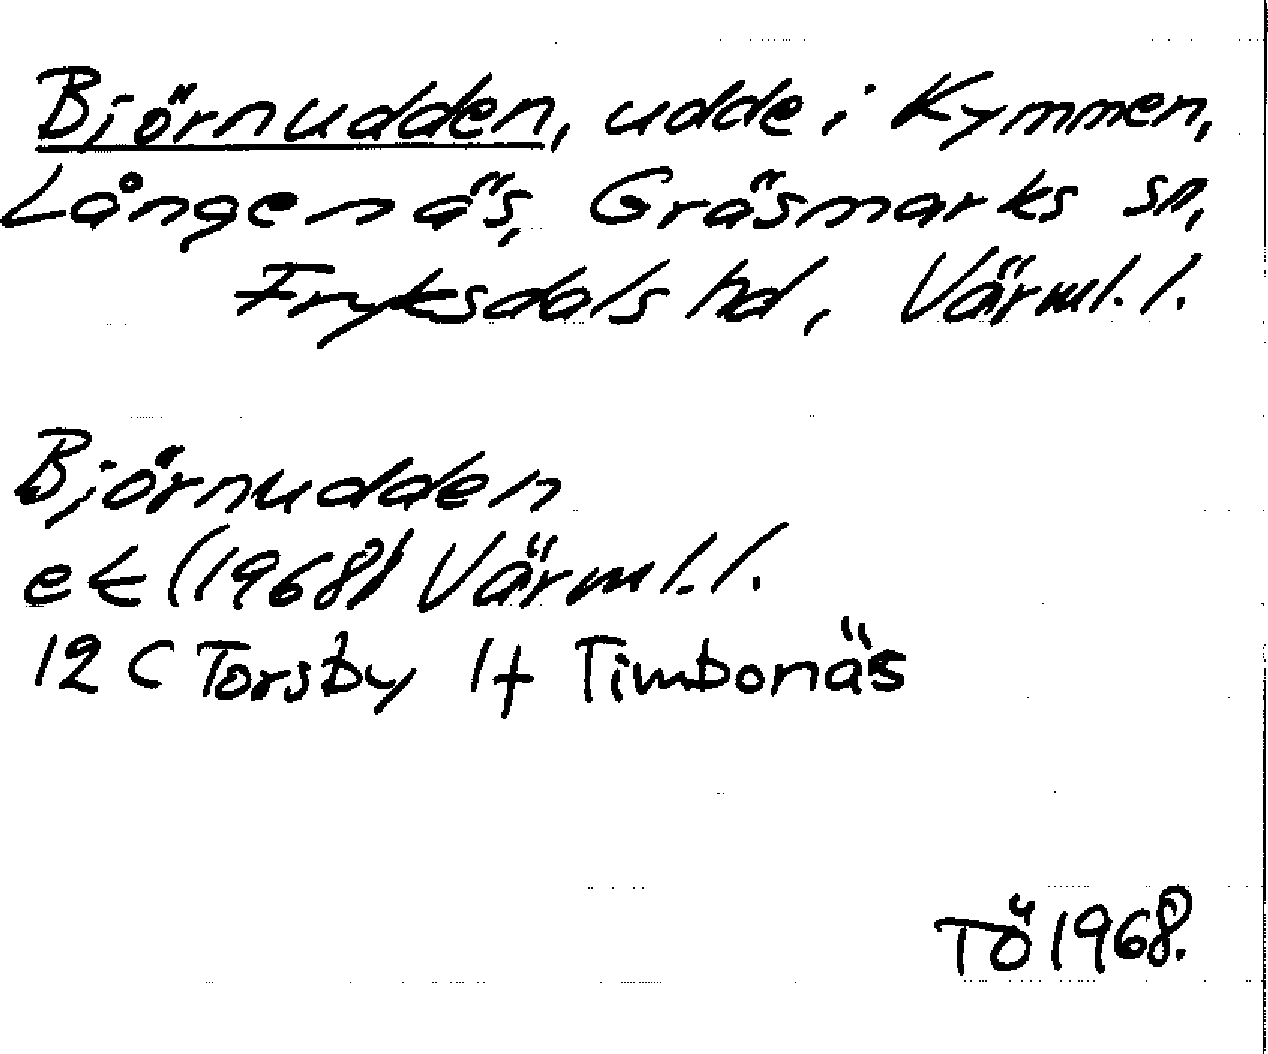 Björnudden, udde i Kymmen,
Långenäs, Gräsmarks sn,
Fryksdals hd, Värml. l.
Björnudden
ek (1968) Värml. l.
12 C Torsby If Timbonäs
TÖ 1968.